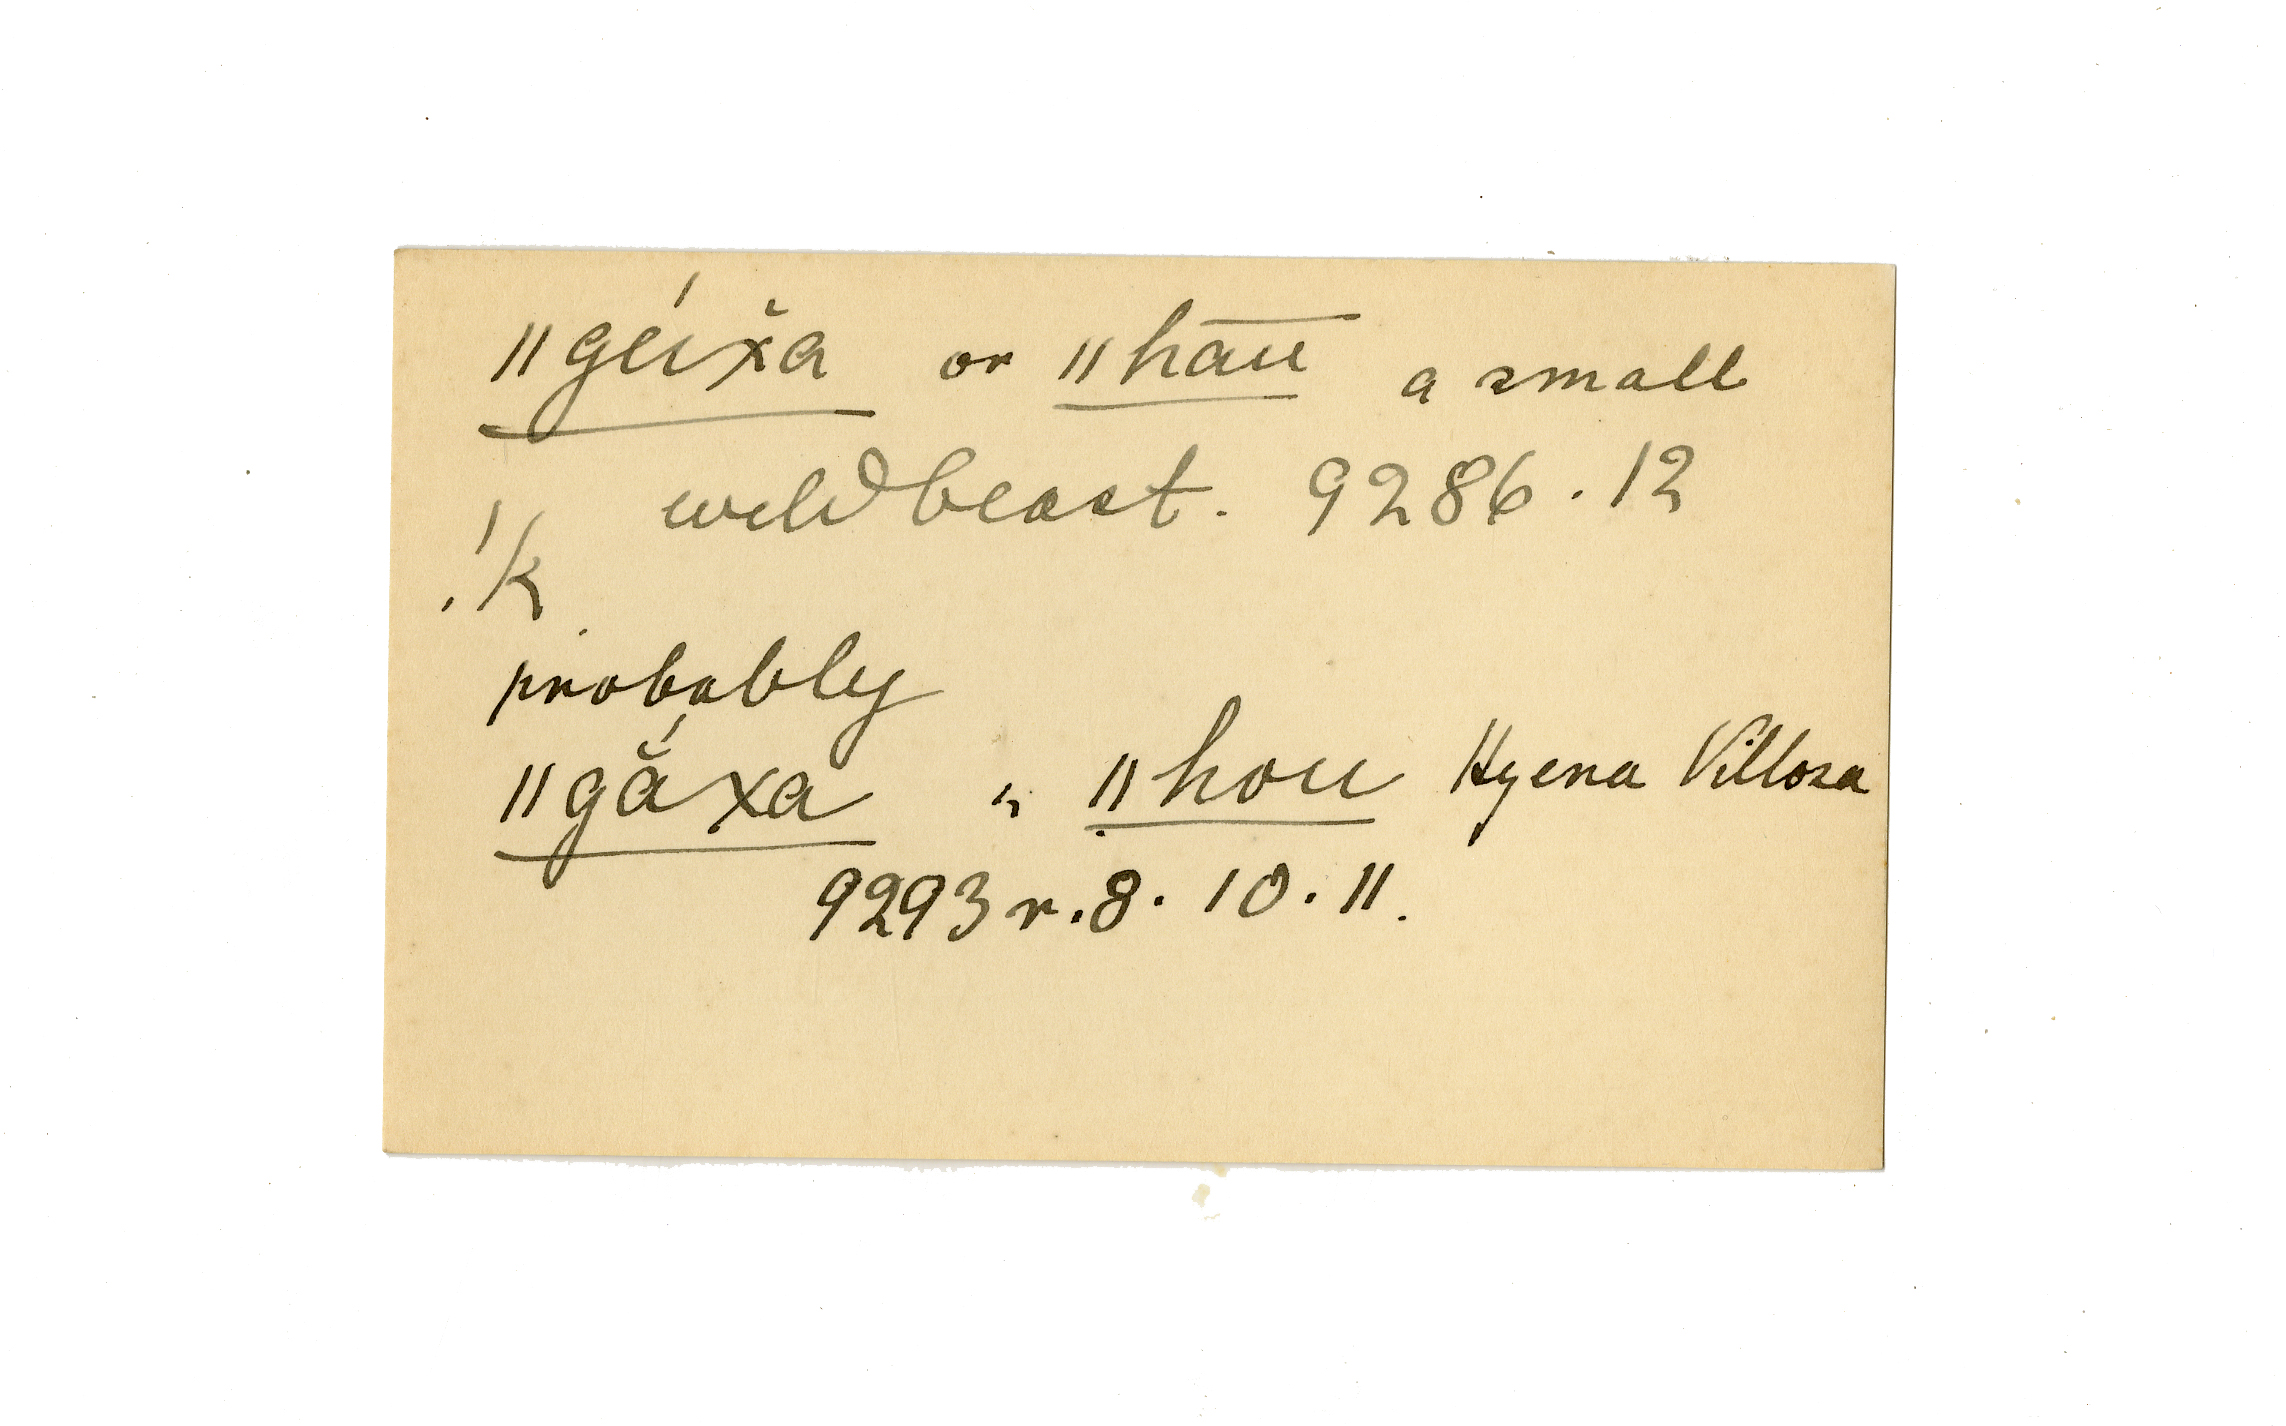 ǁgéix̌a or ǁha͞u a small
wild beast. 9286.12
!k
probably
ǁgắxa " ǁhou Hyena Villosa
9293 r. 8. 10. 11.